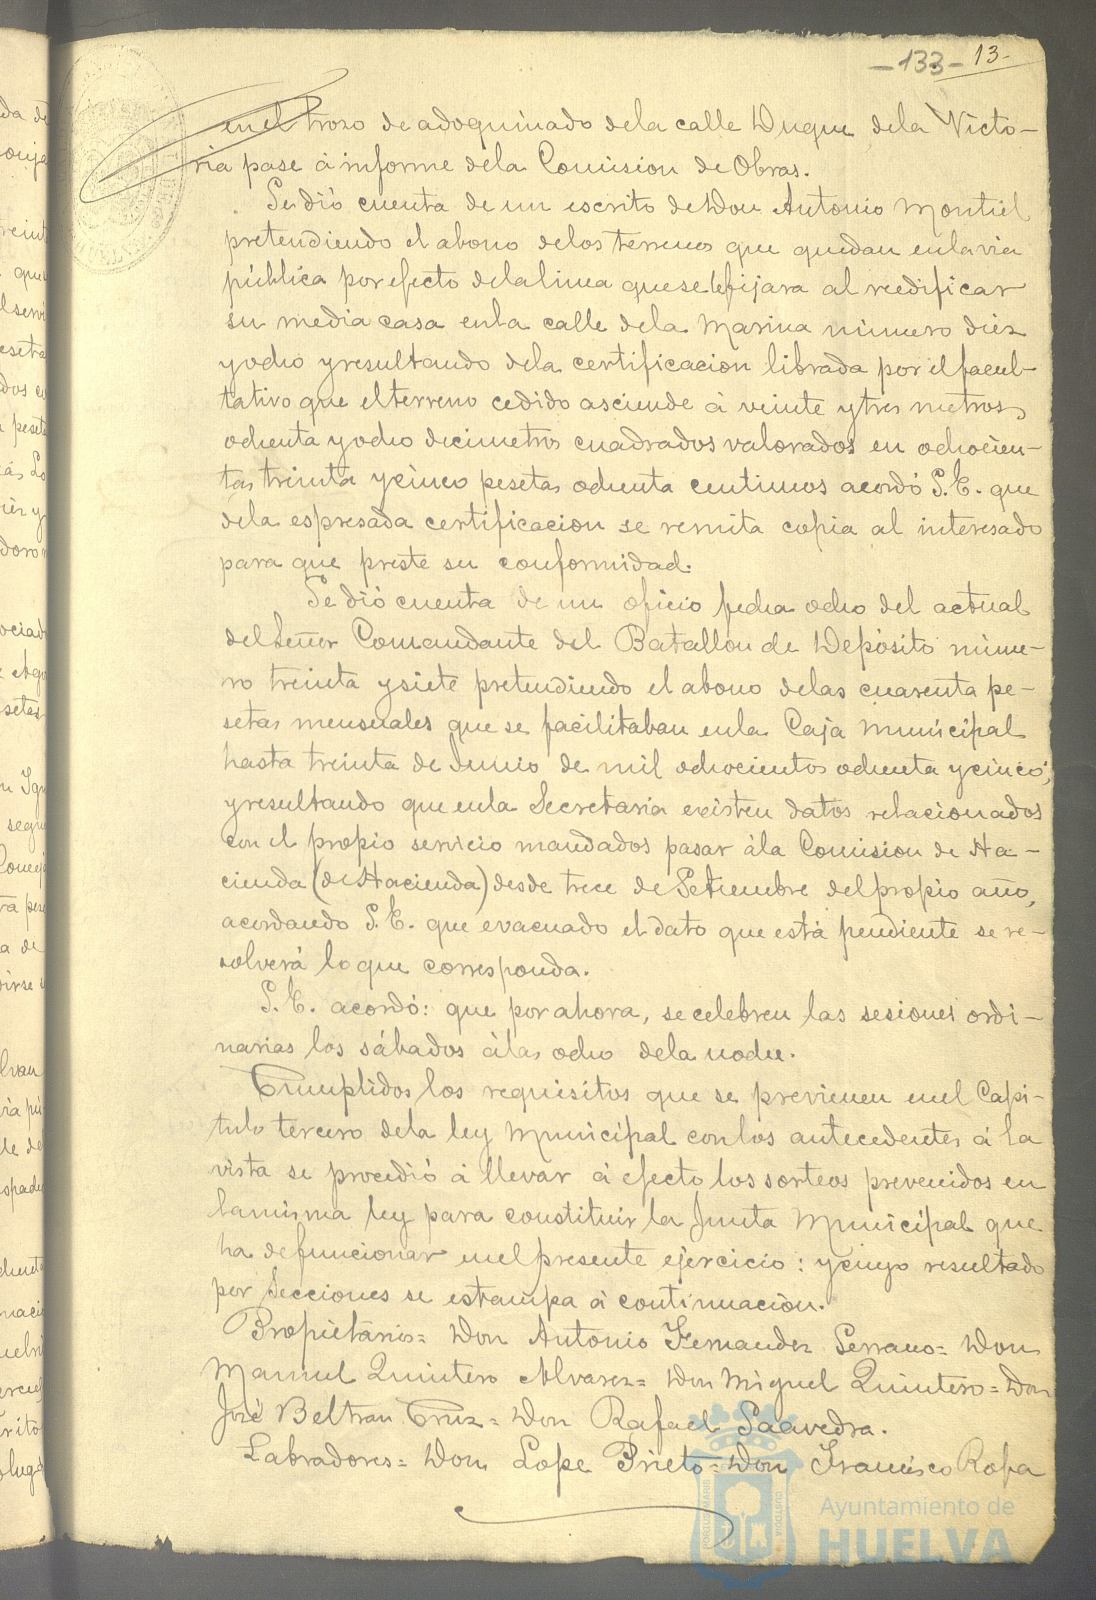 -133- 13-
en el trozo de adoquinado de la calle Duque de la Victo-
ria pase á informe de la Comision de Obras.
Se dió cuenta de un escrito de Don Antonio Montiel
pretendiendo el abono de los terrenos que quedan en la via
pública por efecto de la linea que se le fijara al reedificar
su media casa en la calle de la Marina número diez
y ocho y resultando de la certificacion librada por el facul-
tativo que el terreno cedido asciende á veinte y tres metros,
ochenta y ocho decimetros cuadrados valorados en ochocien-
tas treinta y cinco pesetas ochenta centimos acordó S.E. que
de la espresada certificacion se remita copia al interesado
para que preste su conformidad.
Se dió cuenta de un oficio fecha ocho del actual
del Señor Comandante del Batallon de Depósito núme-
ro treinta y siete pretendiendo el abono de las cuarenta pe-
setas mensuales que se facilitaban en la Caja Municipal
hasta treinta de Junio de mil ochocientos ochenta y cinco;
y resultando que en la Secretaria existen datos relacionados
con el propio servicio mandados pasar á la Comision de Ha-
cienda (de Hacienda) desde trece de Setiembre del propio año,
acordando S.E. que evacuado el dato que está pendiente se re-
solverá lo que corresponda.
S.E. acordó: que por ahora, se celebren las sesiones ordi-
narias los sábados á las ocho de la noche.
Cumplidos los requisitos que se previenen en el Capi-
tulo tercero de la ley Municipal con los antecedentes á la
vista se procedió á llevar á efecto los sorteos prevenidos en
la misma ley para constituir la Junta Municipal que
ha de funcionar en el presente ejercicio: y cuyo resultado
por Secciones se estampa á continuacion.
Propietarios= Don Antonio Fernandez Serrano= Don
Manuel Quintero Alvarez= Don Miguel Quintero= Don
José Beltran Cruz= Don Rafael Saavedra.
Labradores= Don Lope Prieto= Don Francisco Rofa
Ayuntamiento de
HUELVA